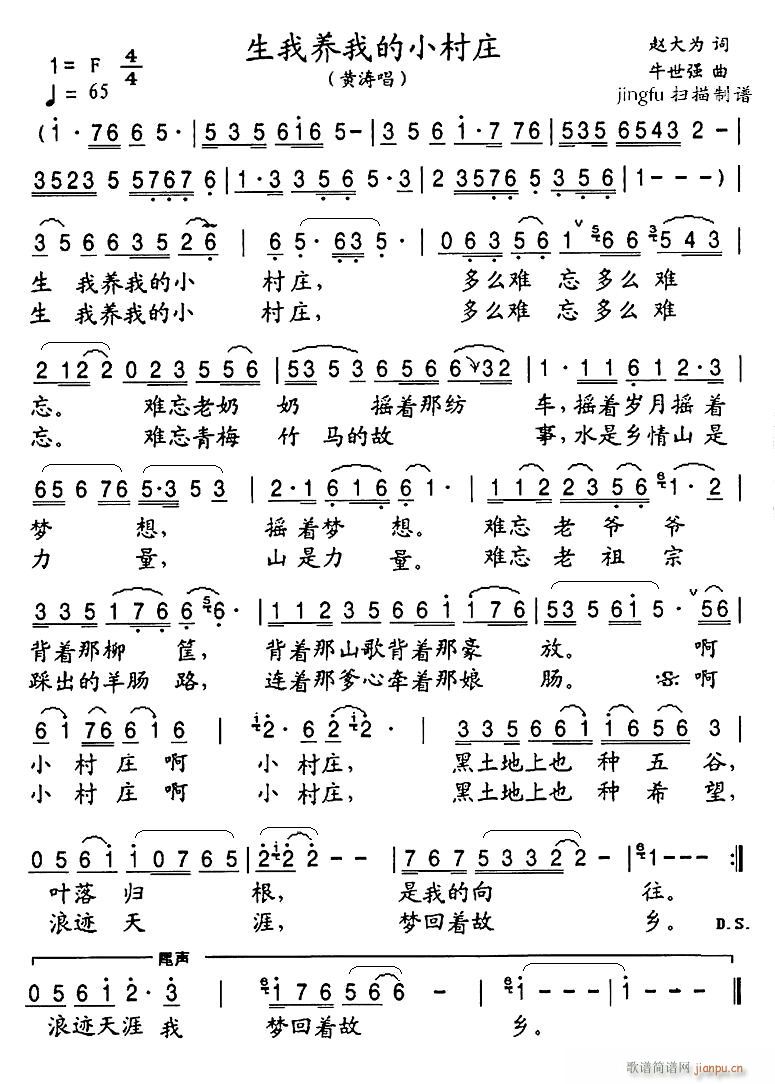 生我养我的小村庄
（黄涛唱）
1= F 4/4
♩= 65
赵大为 词
牛世强 曲
jingfu 扫描制谱
(i· 76 6 5· | 5 3 5 6i6 5· | 3 5 6 i· 7 76 | 535 6543 2 - |
3523 5 5767 6 | 1·3 3 5 6 5·3 | 2 3567 6 5 356 | 1 - - - ) |
3 5 6 6 3 5 2 6 | 6 5· 63 5· | 0 6 3 5 6 1 6 6 3 5 4 3 |
生 我养我的小 村庄， 多么难 忘 多么 难
生 我养我的小 村庄， 多么难 忘 多么 难
2 12 2 0 2 3 5 5 6 | 53 5 3 6 5 6 6 32 | 1· 1 1 6 1 2·3 |
忘。 难忘老奶 奶 摇着那纺 车，摇着岁月摇 着
忘。 难忘青梅 竹 马的故 事，水是乡情山 是
65 6 76 5·3 5 3 | 2·1 6 1 6 6 1· | 1 1 2 2 3 5 6 1· 2 |
梦 想， 摇 着梦 想。 难忘 老 爷 爷
力 量， 山 是力 量。 难忘 老 祖 宗
3 3 5 1 7 6 6 6· | 1 1 2 3 5 6 6 i i 7 6 | 53 5 6i 5· 56 |
背着那柳 筐， 背着那山歌背着那豪 放。 啊
踩出的羊肠 路， 连着那爹心牵着那娘 肠。 啊
6 i 76 6 i 6 | 2· 6 2 2· | 3 3 5 6 6 i i 6 5 6 3 |
小 村 庄 啊 小 村庄， 黑土地上也 种 五 谷，
小 村 庄 啊 小 村庄， 黑土地上也 种 希 望，
0 5 6 i i 0 7 6 5 | 2·2· 2 - - | 7 6 7 5 3 3 2 2 - | 1 - - - :‖
叶落 归 根， 是我的向 往。
浪迹 天 涯， 梦回着故 乡。 D.S.
尾声
0 5 6 i 2· 3 | i 7 6 7 5 6 6 - | i - - - | i - - - ‖
浪迹天涯 我 梦回着故 乡。
歌谱简谱网
jianpu.cn